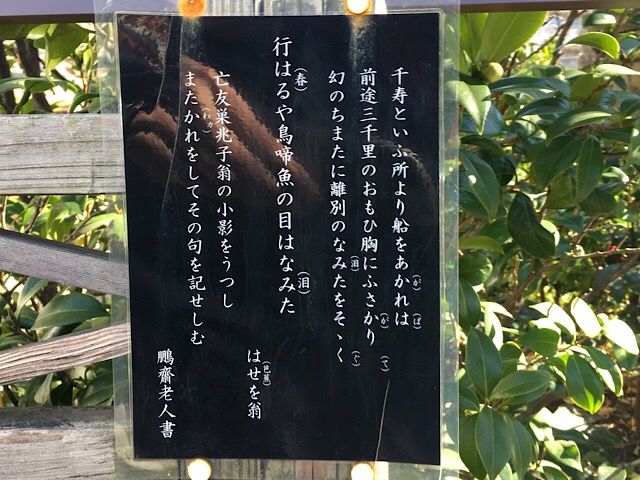 千寿といふ所より船をあかれは
(が)(ば)
前途三千里のおもひ胸にふさかり
(が)(て)
幻のちまたに離別のなみたをそゝく
(泪)(ぐ)
行はるや鳥啼魚の目はなみた
(春)(泪)
はせを翁
(芭蕉)
亡友巣兆子翁の小影をうつし
(わが)
またかれをしてその句を記せしむ
鵬齋老人書